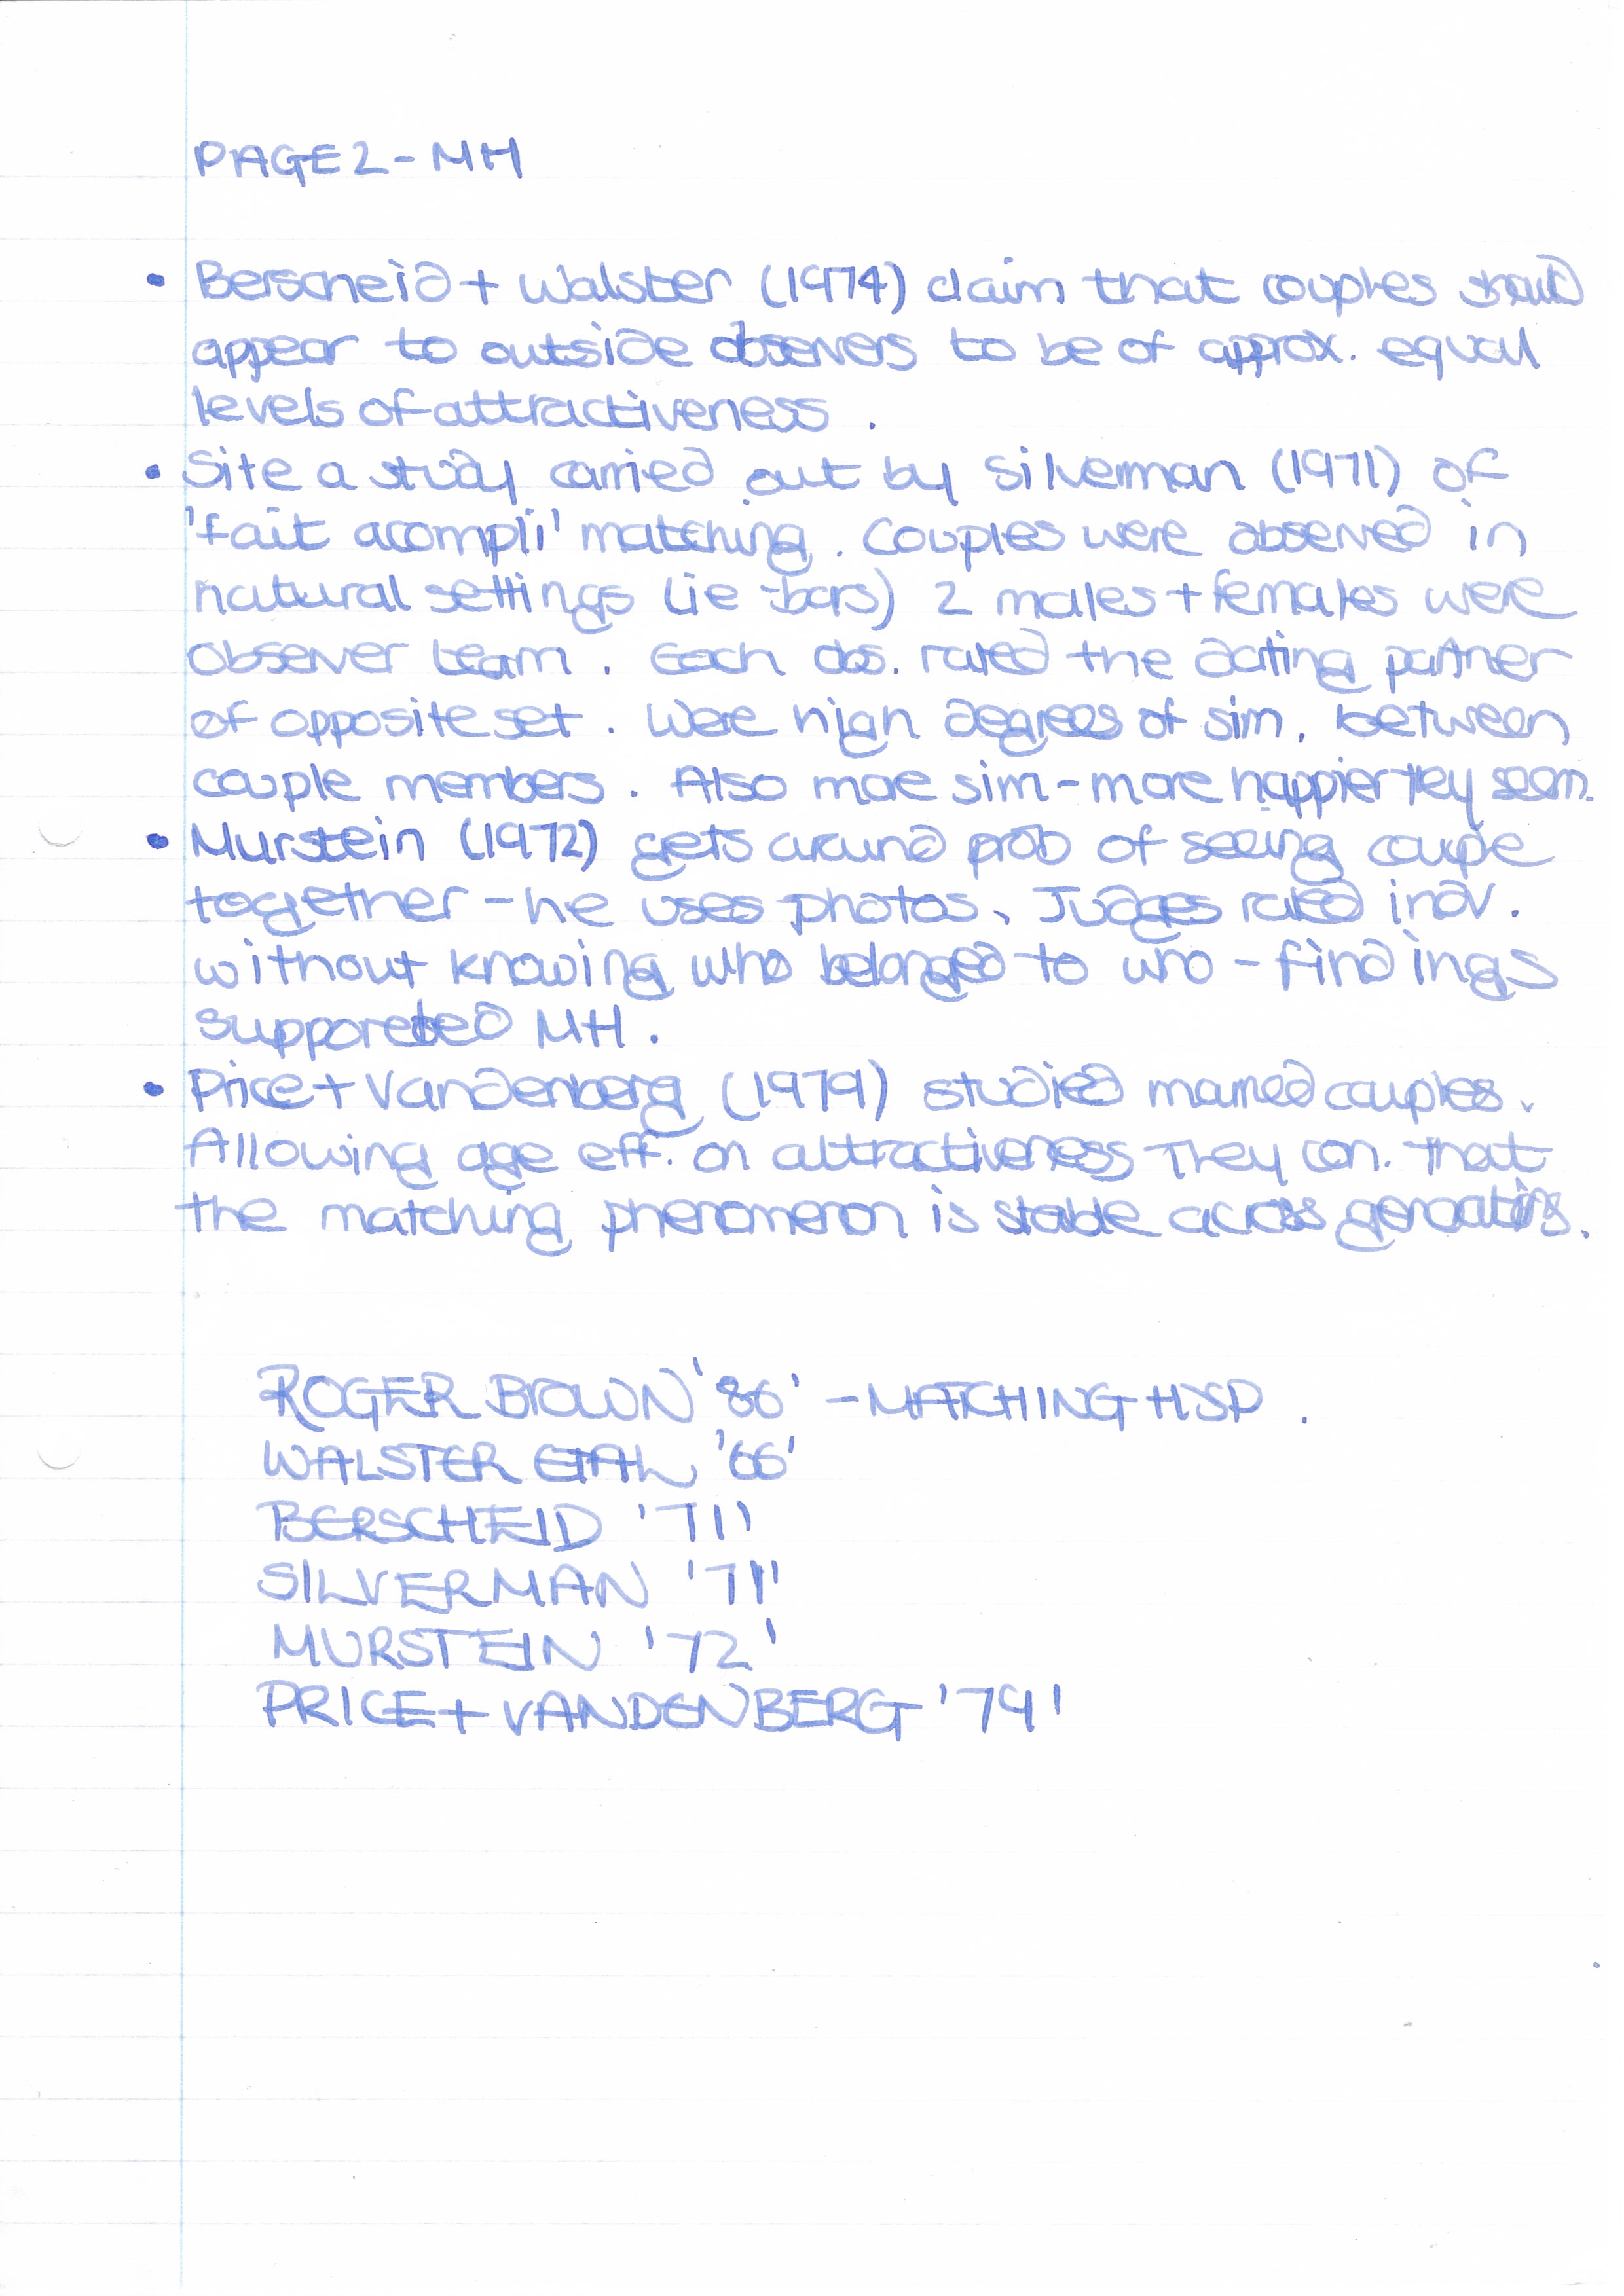 PAGE 2 - MH
• Berscheid + Walster (1974) claim that couples should
appear to outside observers to be of approx. equal
levels of attractiveness .
• Site a study carried out by Silverman (1971) of
'fait acompli' matching. Couples were observed in
natural settings (ie - bars) 2 males + females were
observer team . Each obs. rated the dating partner
of opposite set . Were high degrees of sim. between
couple members . Also more sim - more happier they seem.
• Murstein (1972) gets around prob of seeing couple
together - he uses photos. Judges rated indv.
without knowing who belonged to who - findings
supporeted MH .
• Price + Vandenberg (1979) studied married couples.
Allowing age eff. on attractiveness They con. that
the matching phenomenon is stable across generations.
ROGER BROWN '86' - MATCHING HSP .
WALSTER ETAL '66'
BERSCHEID '71'
SILVERMAN '71'
MURSTEIN '72'
PRICE + VANDENBERG '79'